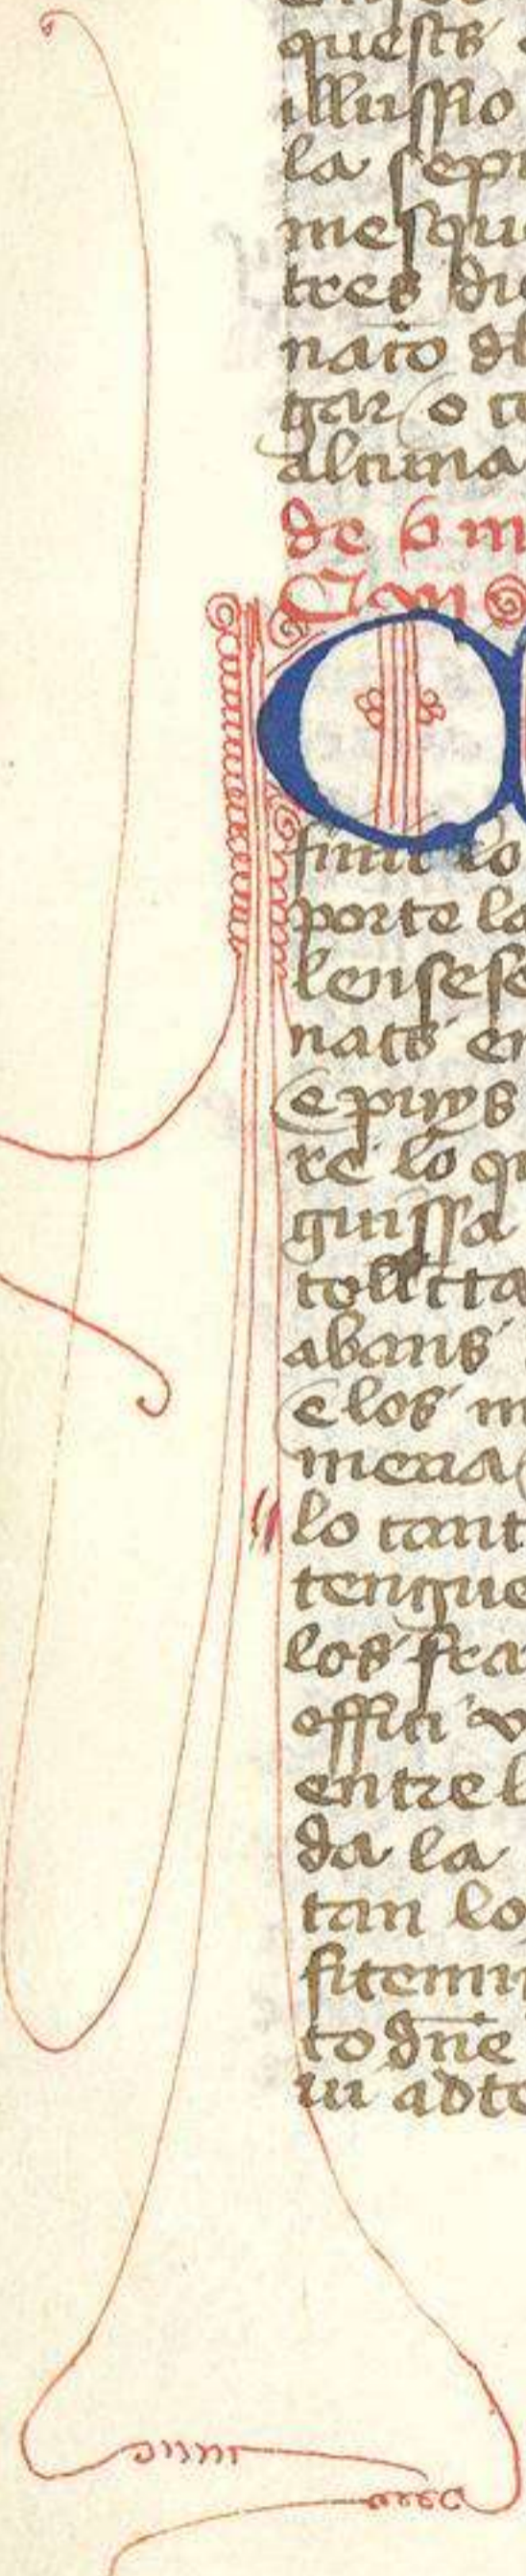 quests
illussio
la sep
mesqui
tres di
nato de
gar o t
altima
de s m
Com
O
finit lo
porte la
lensese
nats en
e puys
re lo qu
guissa
tollita
abans
e los m
mena
lo tant
tengue
los fra
offici v
entre l
da la
tan lo
fitemi
to dne
ui adte